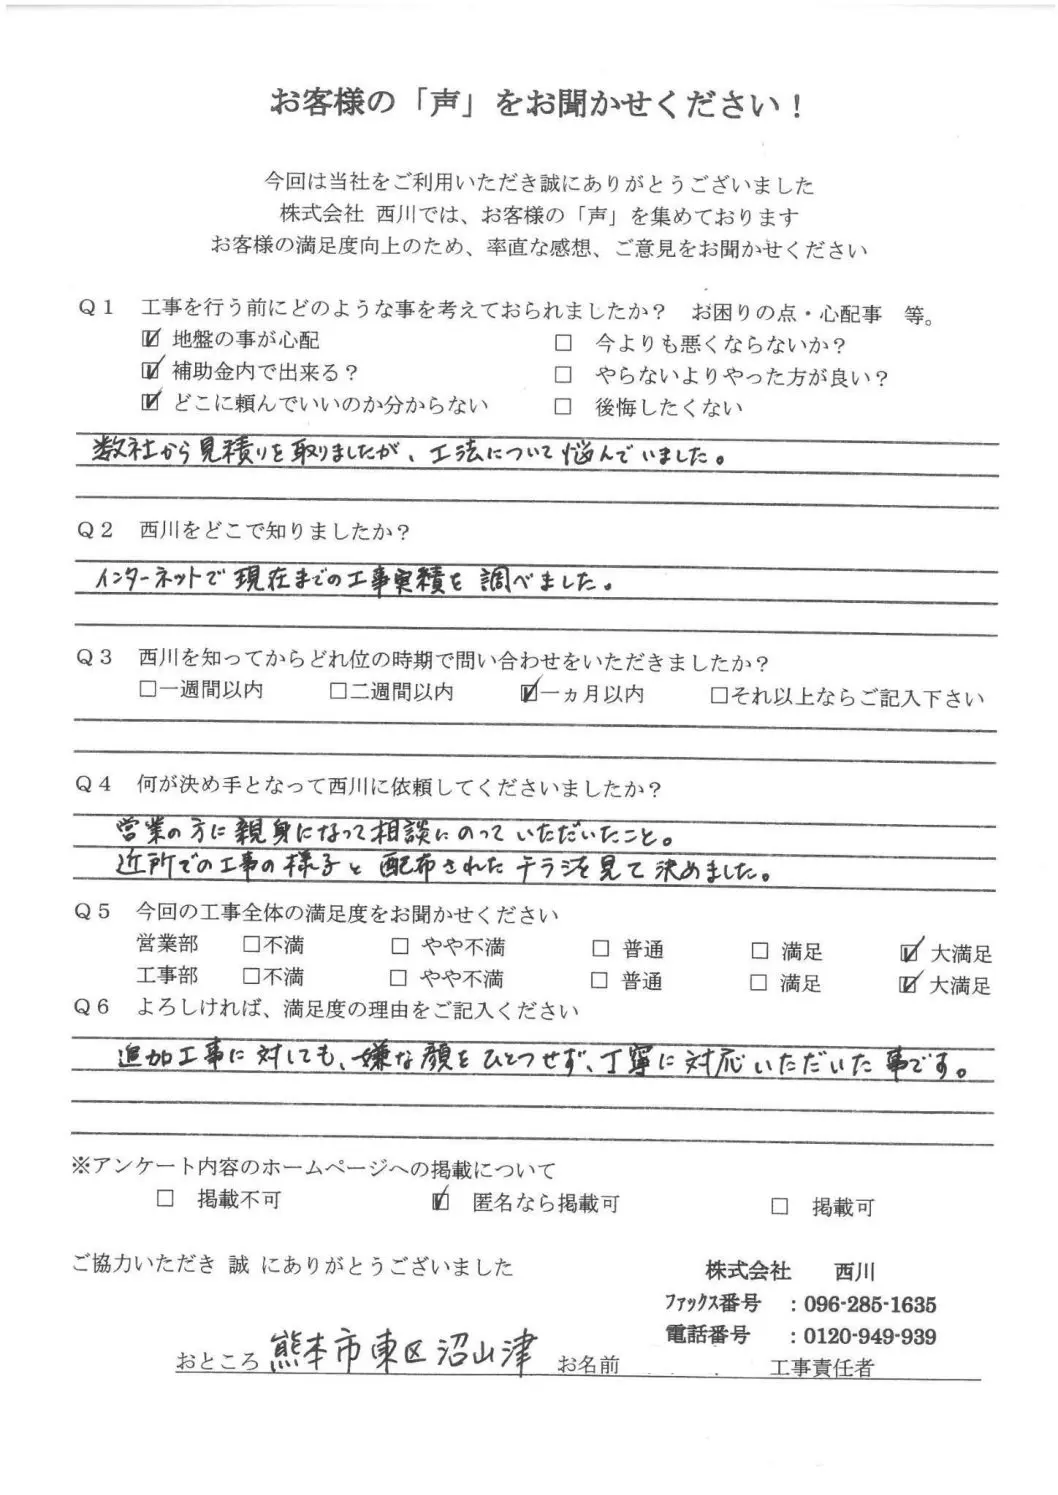 お客様の「声」をお聞かせください！
今回は当社をご利用いただき誠にありがとうございました
株式会社 西川では、お客様の「声」を集めております
お客様の満足度向上のため、率直な感想、ご意見をお聞かせください
Ｑ１ 工事を行う前にどのような事を考えておられましたか？ お困りの点・心配事 等。
☑ 地盤の事が心配 □ 今よりも悪くならないか？
☑ 補助金内で出来る？ □ やらないよりやった方が良い？
☑ どこに頼んでいいのか分からない □ 後悔したくない
数社から見積りを取りましたが、工法について悩んでいました。
Ｑ２ 西川をどこで知りましたか？
インターネットで現在までの工事実績を調べました。
Ｑ３ 西川を知ってからどれ位の時期で問い合わせをいただきましたか？
□一週間以内 □二週間以内 ☑一ヵ月以内 □それ以上ならご記入下さい
Ｑ４ 何が決め手となって西川に依頼してくださいましたか？
営業の方に親身になって相談にのっていただいたこと。
近所での工事の様子と配布されたチラシを見て決めました。
Ｑ５ 今回の工事全体の満足度をお聞かせください
営業部 □不満 □ やや不満 □ 普通 □ 満足 ☑ 大満足
工事部 □不満 □ やや不満 □ 普通 □ 満足 ☑ 大満足
Ｑ６ よろしければ、満足度の理由をご記入ください
追加工事に対しても、嫌な顔をひとつせず、丁寧に対応いただいた事です。
※アンケート内容のホームページへの掲載について
□ 掲載不可 ☑ 匿名なら掲載可 □ 掲載可
ご協力いただき 誠 にありがとうございました
株式会社 西川
ﾌｧｯｸｽ番号 ：096-285-1635
電話番号 ：0120-949-939
おところ 熊本市東区沼山津 お名前 工事責任者